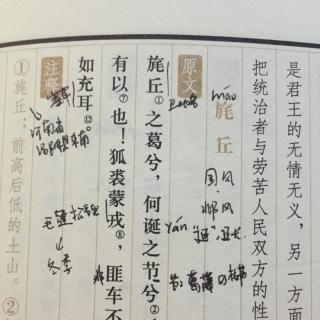 是君王的无情无义，另一方面
把统治者与劳苦人民双方的性
máo
旄丘
国风
邶风
yán
原文
旄丘①之葛兮，何诞之节兮②
有以⑦也！狐裘蒙戎⑧，匪车不
非
如充耳⑫。
毛蓬松貌
冬季
注释
河南省
①旄丘：前高后低的土山。②